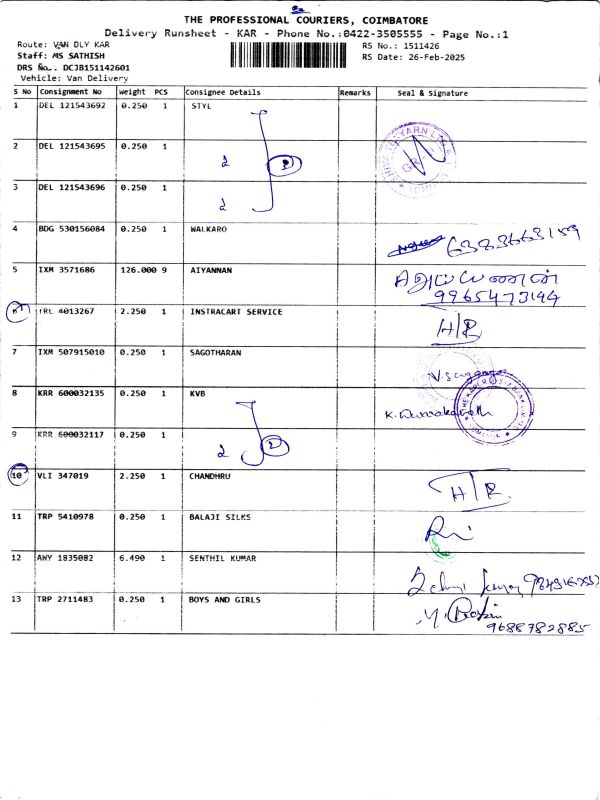 THE PROFESSIONAL COURIERS, COIMBATORE
Delivery Runsheet - KAR - Phone No.:0422-3505555 - Page No.:1
Route: VAN DLY KAR
RS No.: 1511426
Staff: MS SATHISH
RS Date: 26-Feb-2025
DRS No.: DC3B151142601
Vehicle: Van Delivery
S No Consignment No Weight PCS Consignee Details Remarks Seal & Signature
1 DEL 121543692 0.250 1 STYL
2 DEL 121543695 0.250 1
3 DEL 121543696 0.250 1
4 BDG 530156084 0.250 1 WALKARO 6383663159
5 IXM 3571686 126.000 9 AIYANNAN
9965473194
6 TRL 4013267 2.250 1 INSTRACART SERVICE H/R
7 IXM 507915010 0.250 1 SAGOTHARAN
8 KRR 600032135 0.250 1 KVB
9 KRR 600032117 0.250 1
10 VLI 347019 2.250 1 CHANDHRU H/R
11 TRP 5410978 0.250 1 BALAJI SILKS
12 AWY 1835082 6.490 1 SENTHIL KUMAR
13 TRP 2711483 0.250 1 BOYS AND GIRLS
9688782885